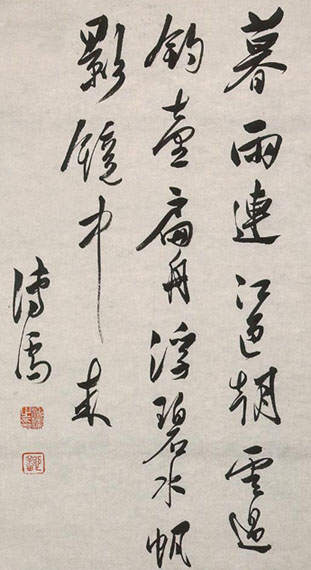 暮雨連江色朝雲過
釣臺扁舟浮碧水帆
影鏡中来
溥儒